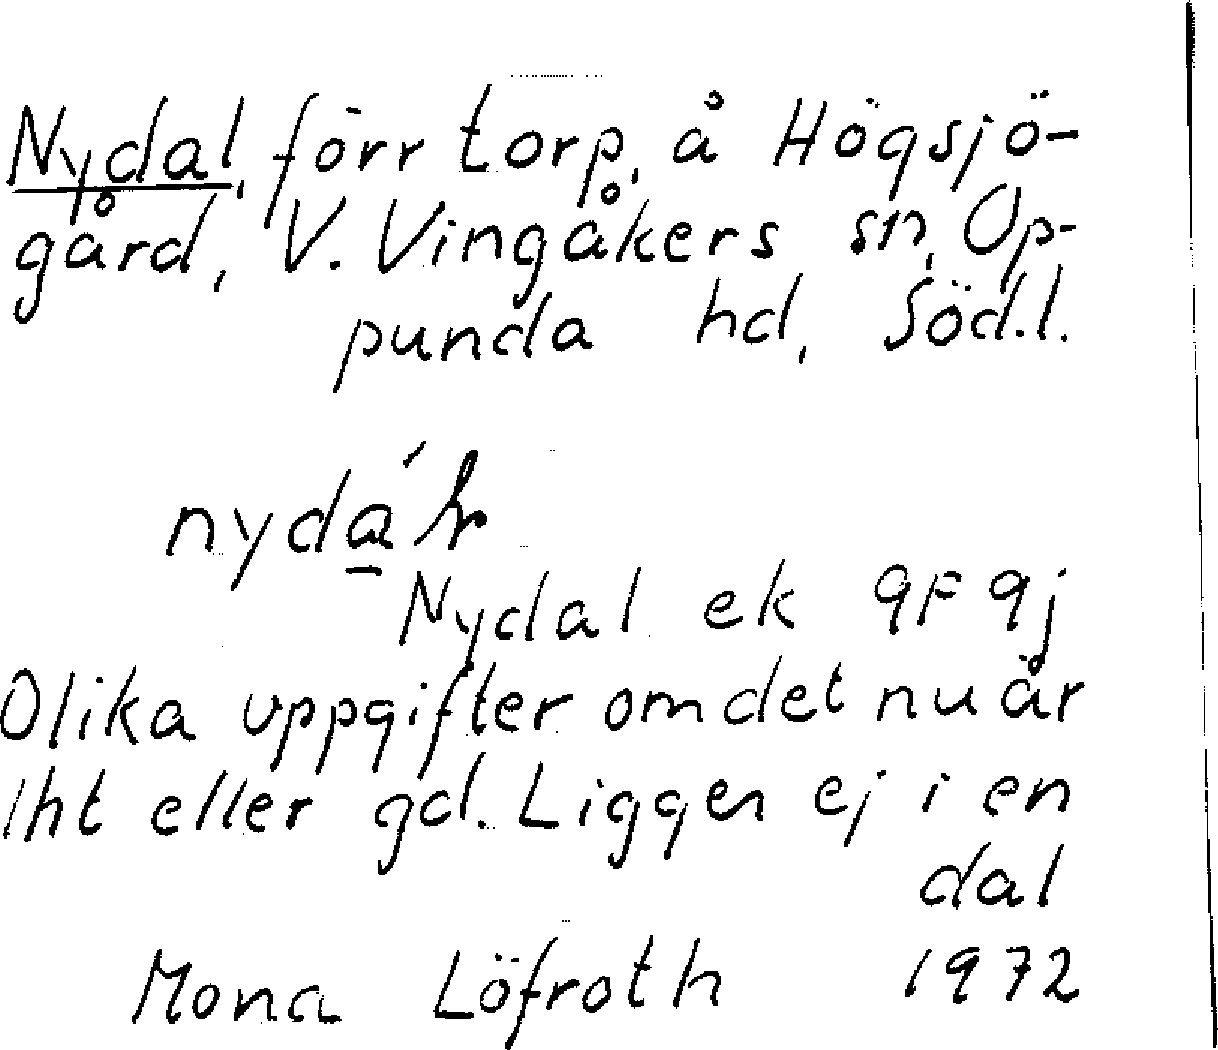 Nydal, förr torp, å Högsjö-
gård, V. Vingåkers sn, Op-
punda hd, Södl.
Nydal ek 9F 9j
Olika uppgifter om det nu är
lht eller gd. Ligger ej i en
dal
Mona Löfroth 1972